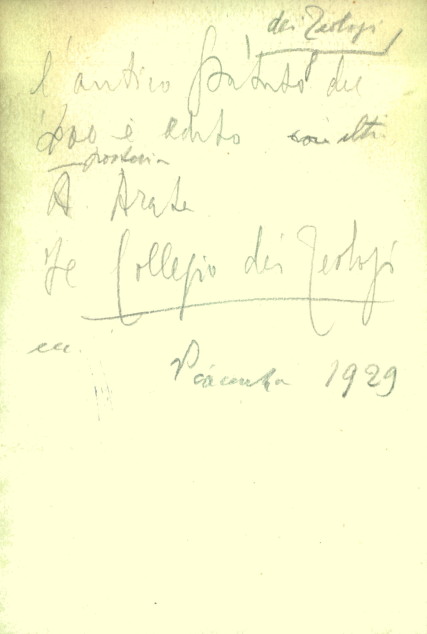 dei Teologi
l'antico Statuto del
è edito con altri
A Arata
Il Collegio dei Teologi
ecc.
Piacenza 1929